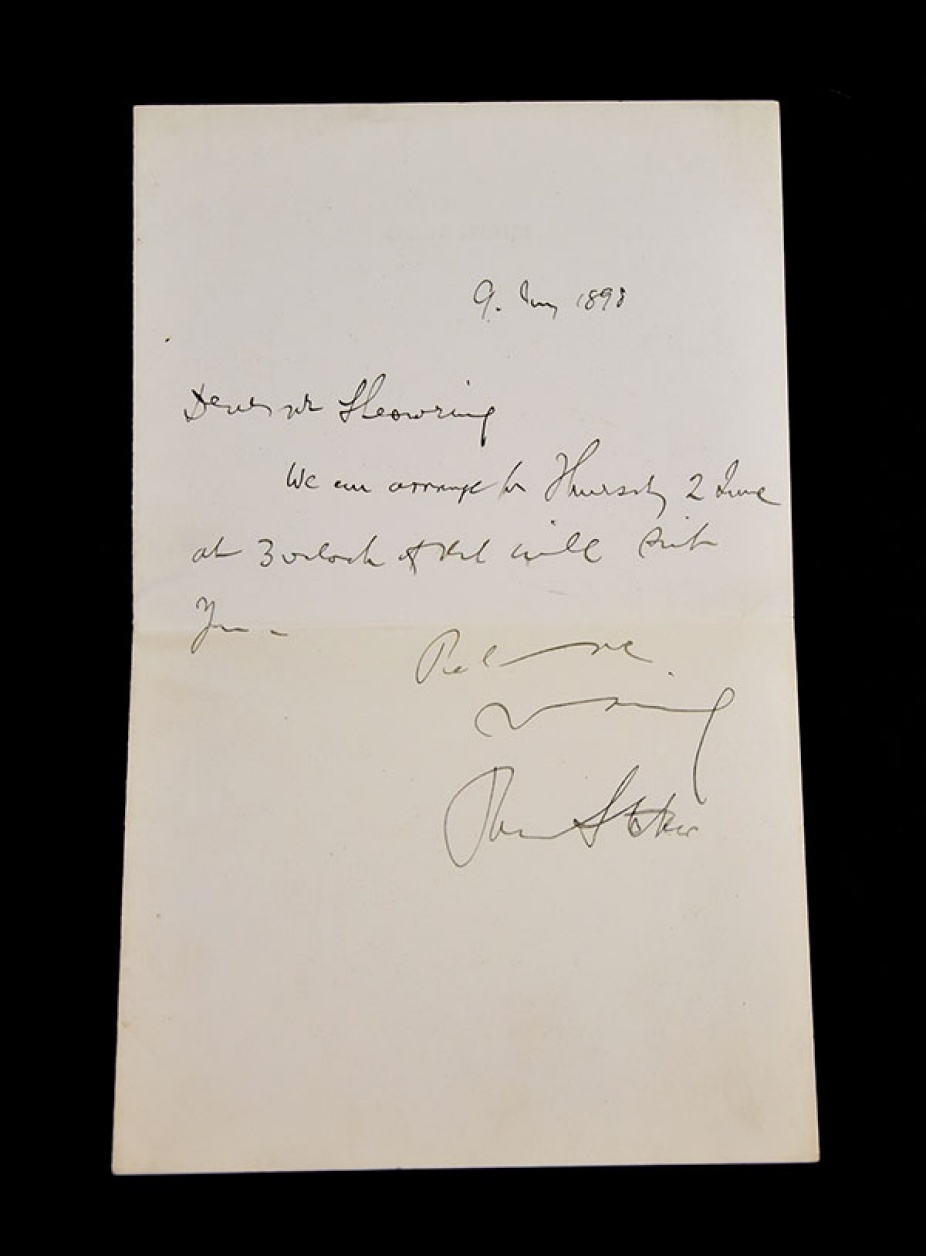 9. May 1898
Dear Mr
We can arrange for Thursday 2 June
at 3 oclock if that will suit
you -
Believe me
Bram Stoker